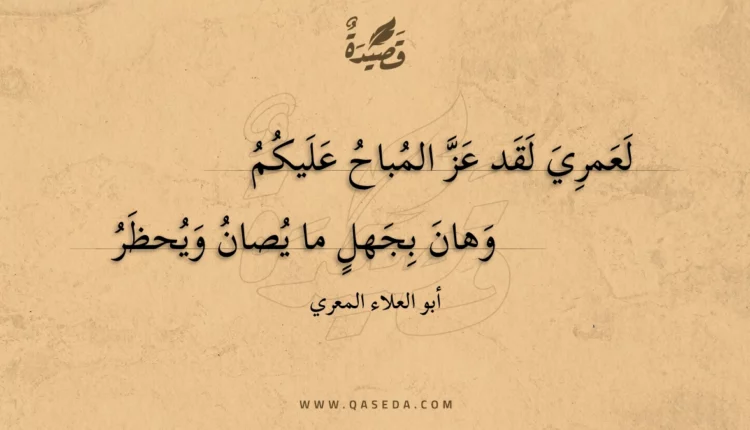 قَصِيْدَةٌ
لَعَمرِيَ لَقَد عَزَّ المُباحُ عَلَيكُمُ
وَهانَ بِجَهلٍ ما يُصانُ وَيُحظَرُ
أبو العلاء المعري
WWW.QASEDA.COM